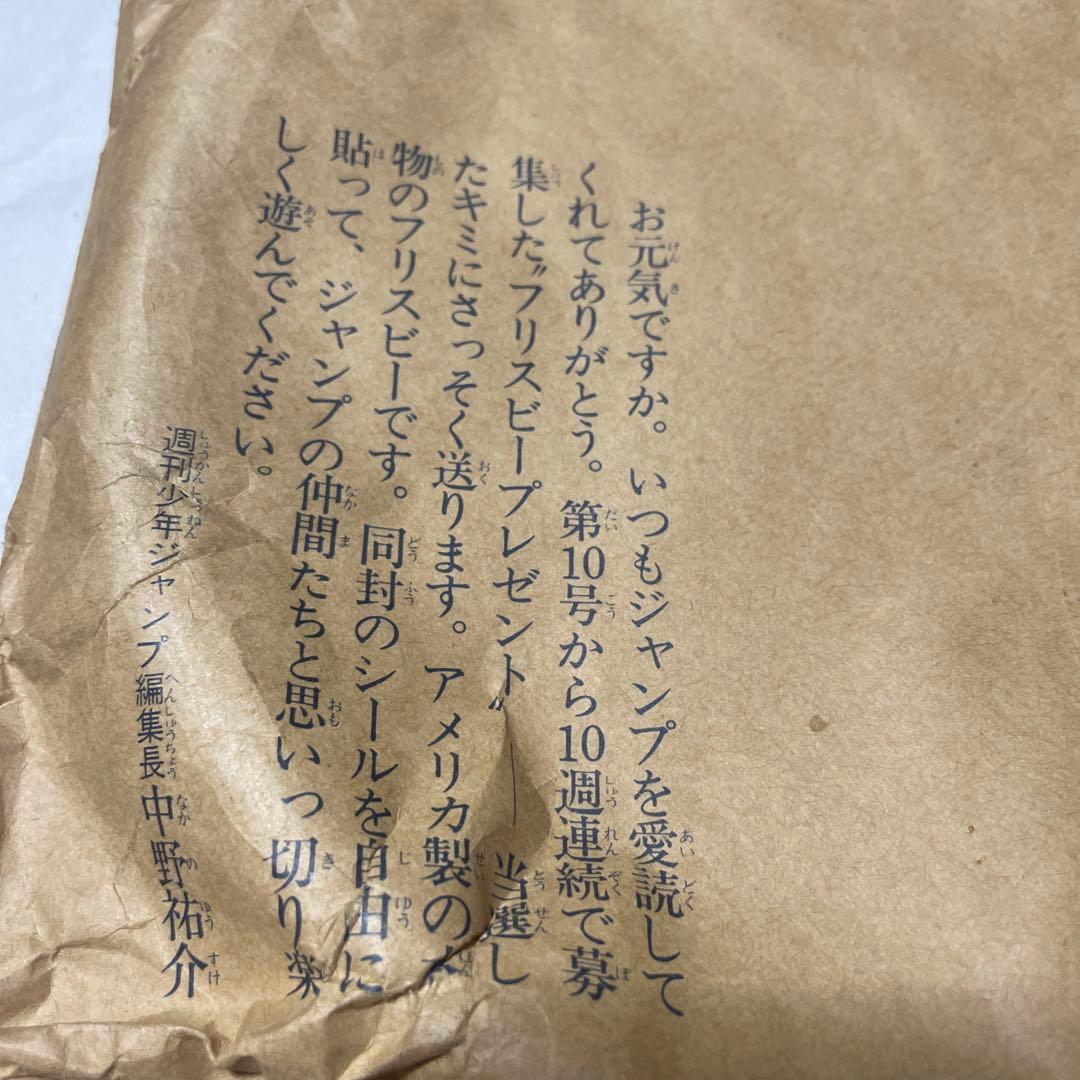 お元気ですか。いつもジャンプを愛読して
くれてありがとう。第10号から10週連続で募
集した〝フリスビープレゼント〟――当選し
たキミにさっそく送ります。アメリカ製の本
物のフリスビーです。同封のシールを自由に
貼って、ジャンプの仲間たちと思いっ切り楽
しく遊んでください。
週刊少年ジャンプ編集長 中野祐介